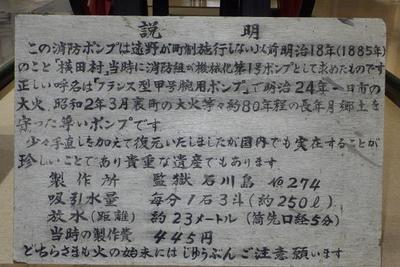 説明
この消防ポンプは遠野が町制施行しない以前明治18年(1885年)
のこと「横田村」当時に消防組が機械化第1号ポンプとして求めたものです
正しい呼名は「フランス型甲号腕用ポンプ」で明治24年一日市の
大火 昭和2年3月裏町の大火等々約80年程の長年月郷土を
守った尊いポンプです
少々手直しを加えて復元いたしましたが国内でも実在することが
珍しいことであり貴重な遺産でもあります
製作所 監獄石川島 No274
吸引水量 毎分1石3斗(約250ℓ)
放水(距離) 約23メートル(筒先口経5分)
当時の製作費 445円
どちらさまも火の始末にはじゅうぶんご注意願います